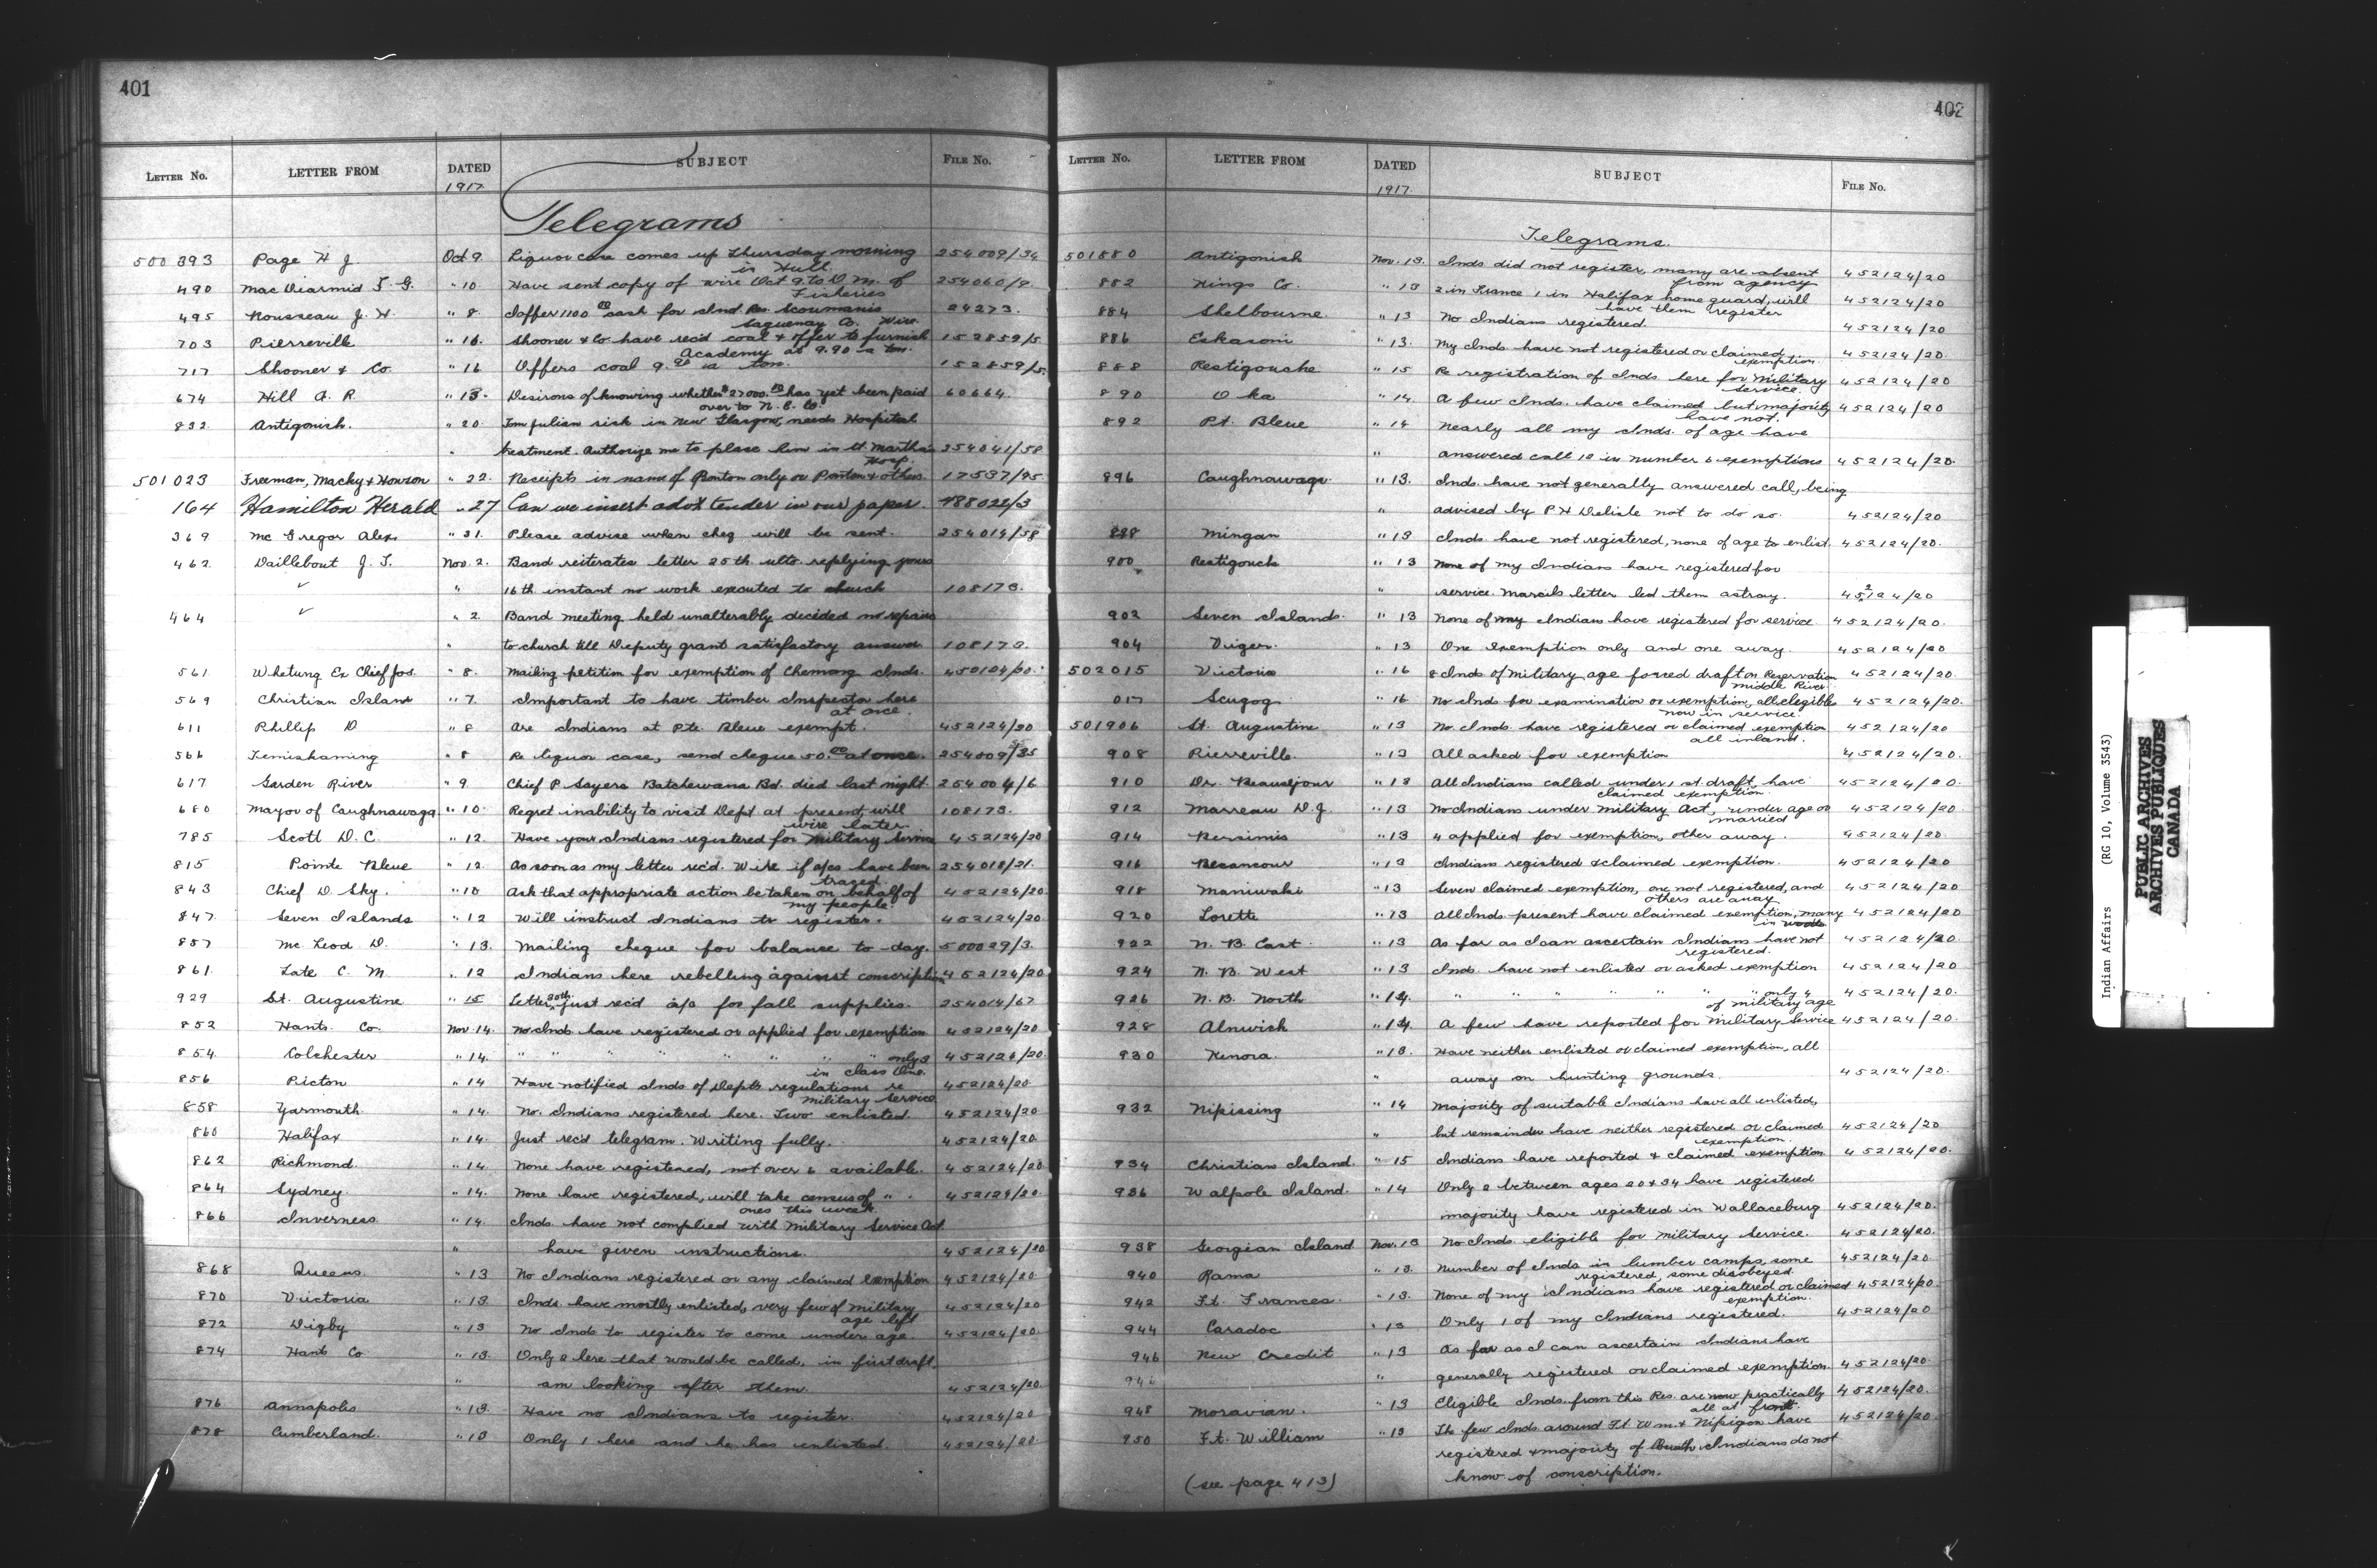 401
LETTER NO. LETTER FROM DATED SUBJECT FILE NO.
1917.
Telegrams
500393 Page H J. Oct 9. Liquor case comes up Thursday morning 254009/34
in Hull.
490 MacDiarmid F. G. " 10. Have sent copy of wire Oct 9. to D M. of 254060/9.
Fisheries
495 Rousseau J. H. " 8. I offer 1100 00 cash for Ind Res. Scoumanis 24273.
Saguenay Co. Wire.
703 Pierreville " 16. Shooner & Co have rec'd coal & offer to furnish 152859/5.
Academy at 9.90 a ton.
717 Shooner & Co. " 16 Offers coal 9.90 a ton. 152859/5.
674 Hill A. R. " 13. Desirous of knowing whether $27000.00 has yet been paid 60664.
over to N. E. Co.
832 Antigonish. " 20. Tom Julian sick in New Glasgow, needs Hospital
" treatment. Authorize me to place him in St. Martha's 254041/58
Hosp.
501023 Freeman, Macky & Howson " 22. Receipts in name of Ponton only or Ponton & others. 17537/95.
164 Hamilton Herald " 27 Can we insert advt tender in our paper. 488022/3
369 Mc Gregor Alex " 31. Please advise when cheq will be sent. 254014/58
462. Daillebout J. T. Nov. 2. Band reiterates letter 25th ulto. replying yours
" 16th instant no work executed to church 108173.
464 " 2. Band meeting held unalterably decided no repairs
" to church till Deputy grant satisfactory answer 108173.
561. Whetung Ex Chief Jos. " 8. Mailing petition for exemption of Chemong Inds. 450104/30.
569 Christian Island " 7. Important to have timber Inspector here
at once.
611 Phillip D " 8 Are Indians at Pte. Bleue exempt. 452124/20
566 Temishaming " 8 Re liquor case, send cheque 50.00 at once. 254009/35
617 Garden River " 9. Chief P Sayers Batchewana Bd. died last night. 254004/6
680 Mayor of Caughnawaga. " 10. Regret inability to visit Dept at present, will 108173.
wire later.
785 Scott D. C. " 12. Have your Indians registered for Military Service 452124/20
815 Pointe Bleue " 12. As soon as my letter rec'd. Wire if a/cs have been 254018/21.
traced.
843 Chief D. Sky. " 10 Ask that appropriate action be taken on behalf of 452124/20
my people.
847. Seven Islands " 12 Will instruct Indians to register. 452124/20.
857 Mc Leod D. " 13. Mailing cheque for balance to-day. 500029/3.
861. Tate C. M. " 12 Indians here rebelling against conscription 452124/20
929 St. Augustine " 15 Letter 30th just rec'd a/c for fall supplies. 254014/67
852 Hants. Co. Nov. 14. No Inds have registered or applied for exemption 452124/20
854. Colchester " 14. " " " " " " " only 3 452124/20.
in class One.
856 Picton " 14 Have notified Inds of Depts regulations re 452124/20
military service
858 Yarmouth. " 14. No. Indians registered here. Two enlisted. 452124/20
860 Halifax " 14. Just rec'd telegram. Writing fully. 452124/20.
862 Richmond. " 14. None have registered, not over 6 available. 452124/20
864 Sydney. " 14. None have registered, will take census of " . 452124/20.
ones this week.
866 Inverness. " 14. Inds. have not complied with Military Service Act
" have given instructions. 452124/20
868 Queens. " 13 No Indians registered or any claimed exemption 452124/20
870 Victoria " 13. Inds. have mostly enlisted, very few of military 452124/20
age left
872 Digby " 13 No Inds to register to come under age. 452124/20.
874 Hants Co. " 13. Only 2 here that would be called, in first draft,
" am looking after them. 452124/20.
876 Annapolis " 13. Have no Indians to register. 452124/20
878 Cumberland. " 13 Only 1 here and he has enlisted. 452124/20.
402
LETTER NO. LETTER FROM DATED SUBJECT FILE NO.
1917.
Telegrams.
501880 Antigonish Nov. 13. Inds did not register, many are absent 452124/20
from agency
882 Kings Co. " 13 2 in France 1 in Halifax home guard, will 452124/20
have them register
884 Shelbourne. " 13 No Indians registered. 452124/20
886 Eskasoni " 13. My Inds. have not registered or claimed 452124/20.
exemption.
888 Restigouche " 15 Re registration of Inds here for Military 452124/20
service.
890 Oka " 14. A few Inds. have claimed but majority 452124/20
have not.
892 Pt. Bleue " 14 Nearly all my Inds. of age have
" answered call 10 in number 6 exemptions 452124/20.
896 Caughnawaga. " 13. Inds. have not generally answered call, being
" advised by P H Delisle not to do so. 452124/20
898 Mingan " 13 Inds. have not registered, none of age to enlist. 452124/20.
900 Restigouch " 13 None of my Indians have registered for
" service. Marcils letter led them astray. 452124/20
902 Seven Islands. " 13 None of my Indians have registered for service. 452124/20.
904 Viger. " 13 One exemption only and one away. 452124/20
502015 Victoria " 16 8 Inds of military age forced draft on Reservation 452124/20.
Middle River.
017 Scugog. " 16 No Inds for examination or exemption, all elegible 452124/20.
now in service.
501906 St. Augustine " 13 No Inds. have registered or claimed exemption 452124/20
all inland.
908 Pierreville. " 13 All asked for exemption 452124/20.
910 Dr. Beausejour " 13 All Indians called under 1 st. draft, have 452124/20.
claimed exemption.
912 Marreau D. J. " 13 No Indians under Military Act, under age or 452124/20.
married
914 Bersimis " 13 4 applied for exemption, other away. 452124/20.
916 Becancour " 13 Indians registered & claimed exemption. 452124/20
918 Maniwaki " 13 Seven claimed exemption, one not registered, and 452124/20
others are away
920 Lorette " 13 All Inds. present have claimed exemption, many 452124/20
in woods
922 N. B. East. " 13 As far as I can ascertain Indians have not 452124/20.
registered.
924 N. B. West " 13 Inds. have not enlisted or asked exemption 452124/20
926 N. B. North " 14. " " " " " " " only 4 452124/20.
of military age
928 Alnwick " 14. A few have reported for Military Service 452124/20.
930 Kenora. " 13. Have neither enlisted or claimed exemption, all
" away on hunting grounds. 452124/20.
932 Nipissing " 14 Majority of suitable Indians have all enlisted,
" but remainder have neither registered or claimed 452124/20
exemption.
934 Christian Island. " 15 Indians have reported & claimed exemption 452124/20.
936 Walpole Island. " 14 Only 2 between ages 20 & 34 have registered
majority have registered in Wallaceburg 452124/20.
938 Georgian Island Nov. 13 No Inds eligible for Military Service. 452124/20.
940 Rama " 13. Number of Inds in lumber camps, some 452124/20.
registered, some disobeyed.
942 Ft. Frances. " 13. None of my Indians have registered or claimed 452124/20.
exemption.
944 Caradoc " 13 Only 1 of my Indians registered. 452124/20
946 New Credit " 13 As far as I can ascertain Indians have
946 " generally registered or claimed exemption. 452124/20.
948 Moravian. " 13 Eligible Inds. from this Res. are now practically 452124/20.
all at front.
950 Ft. William " 13 The few Inds. around Ft. Wm. & Nipigon have 452124/20.
registered & majority of Indians do not
(see page 413) know of conscription.
Indian Affairs (RG 10, Volume 3543)
PUBLIC ARCHIVES
ARCHIVES PUBLIQUES
CANADA